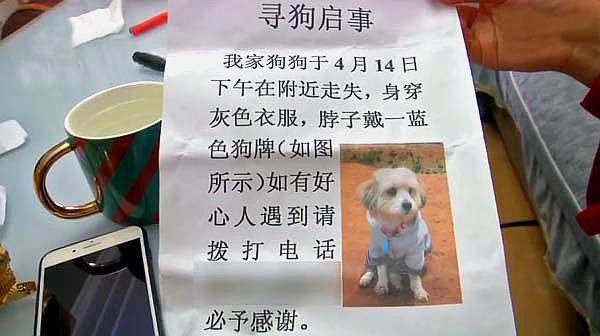 寻狗启事
我家狗狗于4月14日
下午在附近走失，身穿
灰色衣服，脖子戴一蓝
色狗牌(如图
所示)如有好
心人遇到请
拨打电话
必予感谢。